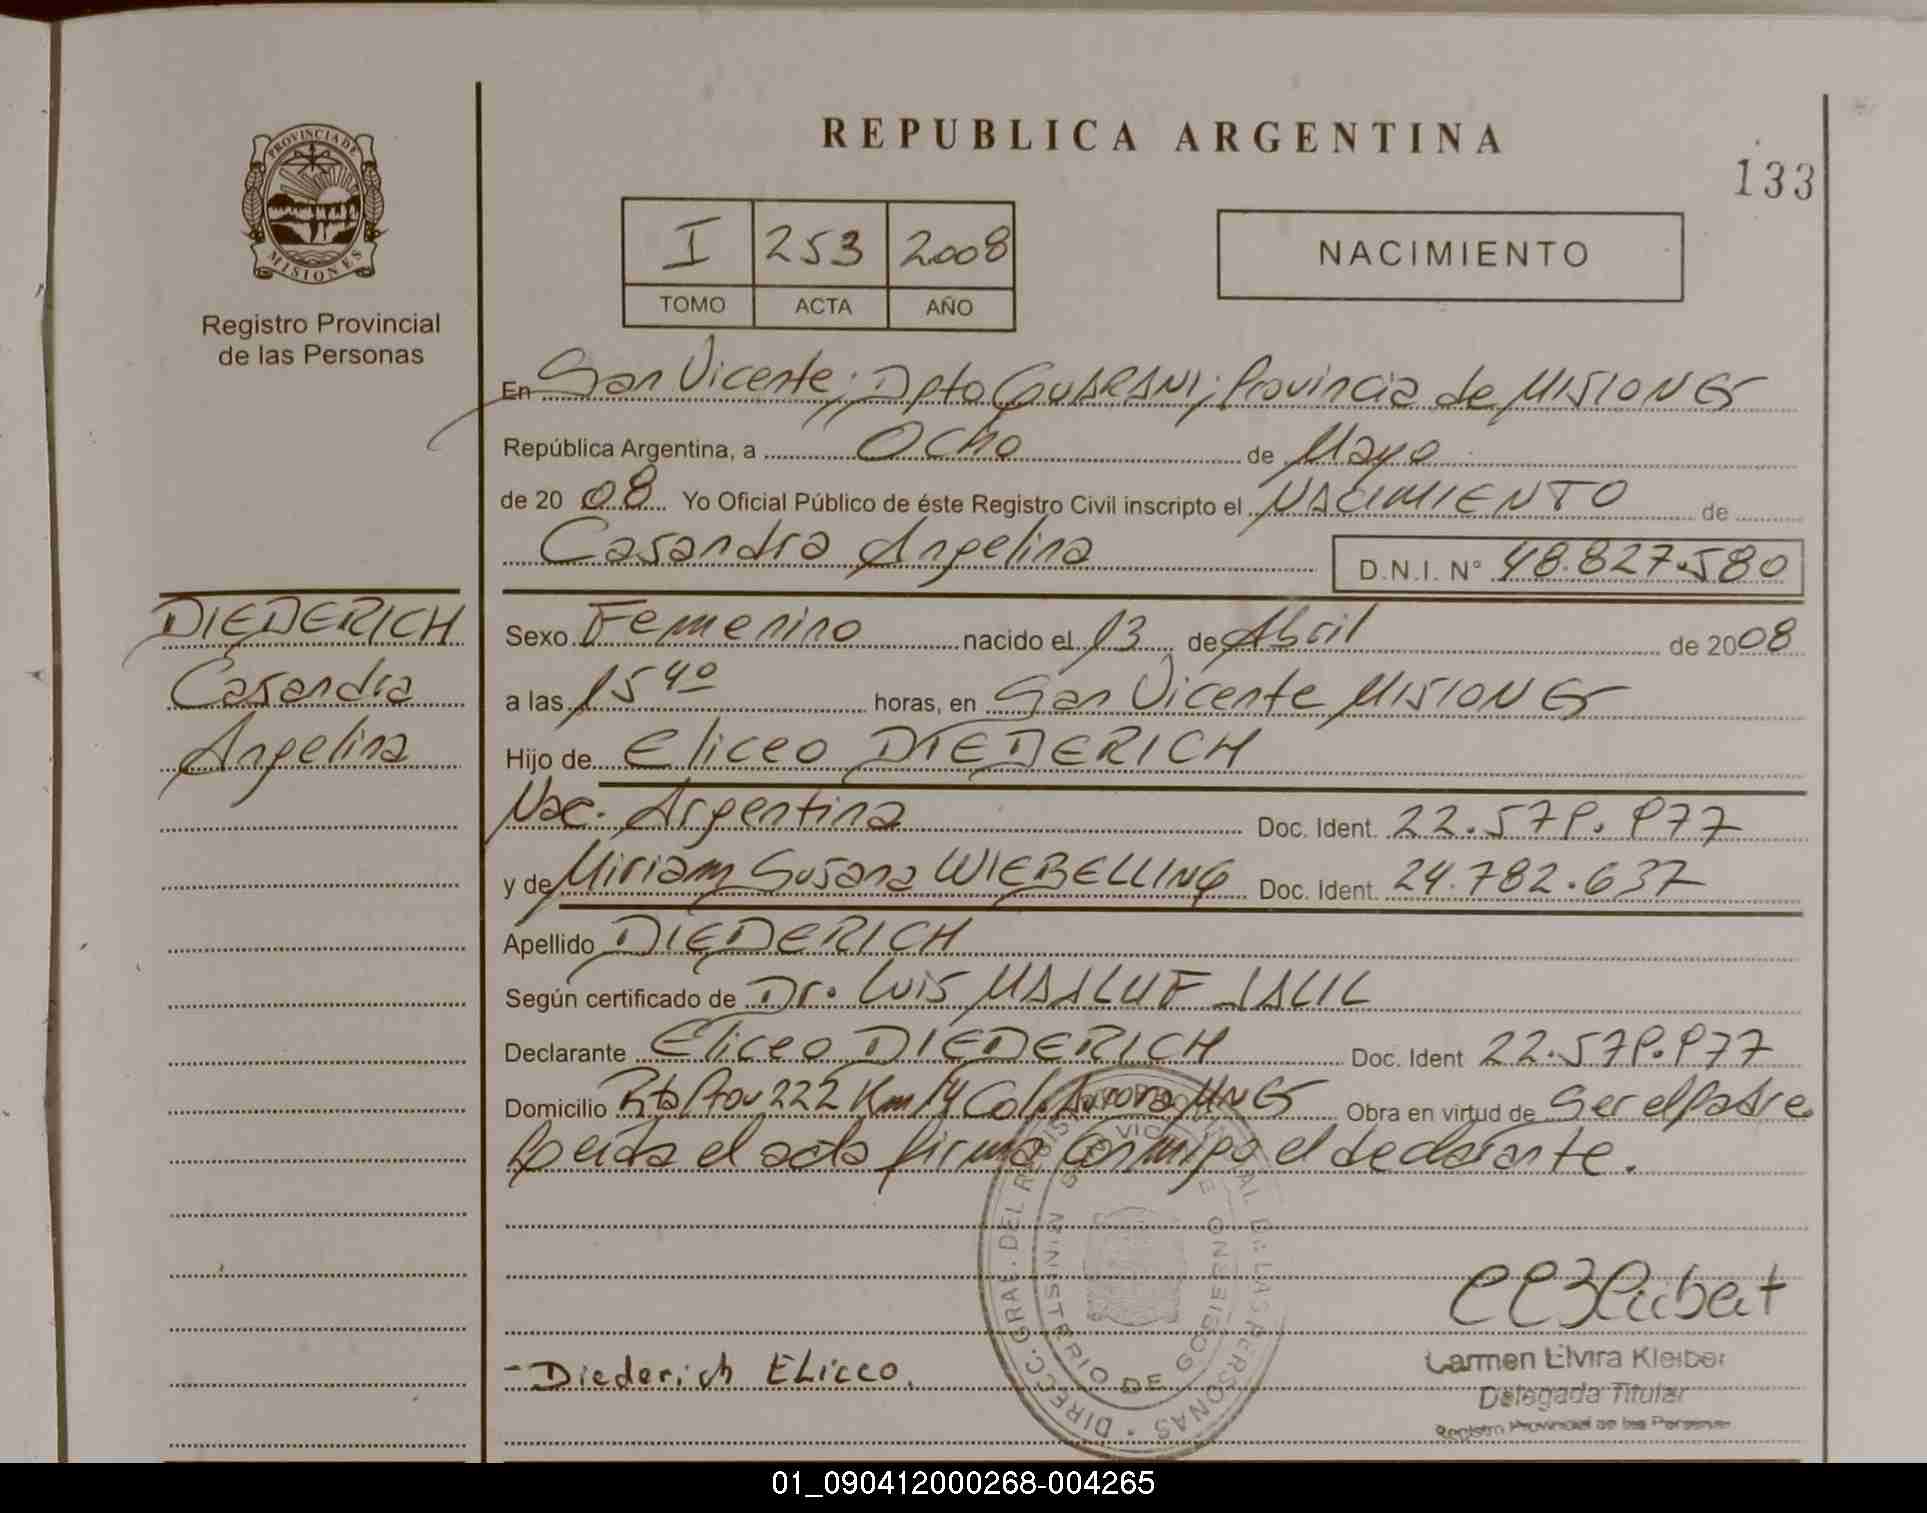 PROVINCIA DE
MISIONES
Registro Provincial
de las Personas
REPUBLICA ARGENTINA
133
I 253 2008
TOMO ACTA AÑO
NACIMIENTO
En San Vicente; Dpto GUARANI; Provincia de MISIONES
República Argentina, a Ocho de Mayo
de 2008 Yo Oficial Público de éste Registro Civil inscripto el NACIMIENTO de
Casandra Angelina D.N.I. N° 48.827.580
DIEDERICH
Casandra
Angelina
Sexo Femenino nacido el 13 de Abril de 2008
a las 15 40 horas, en San Vicente MISIONES
Hijo de Eliceo DIEDERICH
Nac. Argentina Doc. Ident. 22.579.977
y de Miriam Susana WIEBELLING Doc. Ident. 24.782.637
Apellido DIEDERICH
Según certificado de Dr. Luis MAALUF JALIL
Declarante Eliceo DIEDERICH Doc. Ident 22.579.977
Domicilio Rta Prov 222 Km 14 Col. Aurora MNES Obra en virtud de Ser el Padre
Leida el acta firma conmigo el declarante.
DIRECC. GRAL. DEL
DE LAS PERSONAS
MINISTERIO DE GOBIERNO
- Diederich Eliceo.
Carmen Elvira Kleiber
Delegada Titular
Registro Provincial de las Personas
01_090412000268-004265